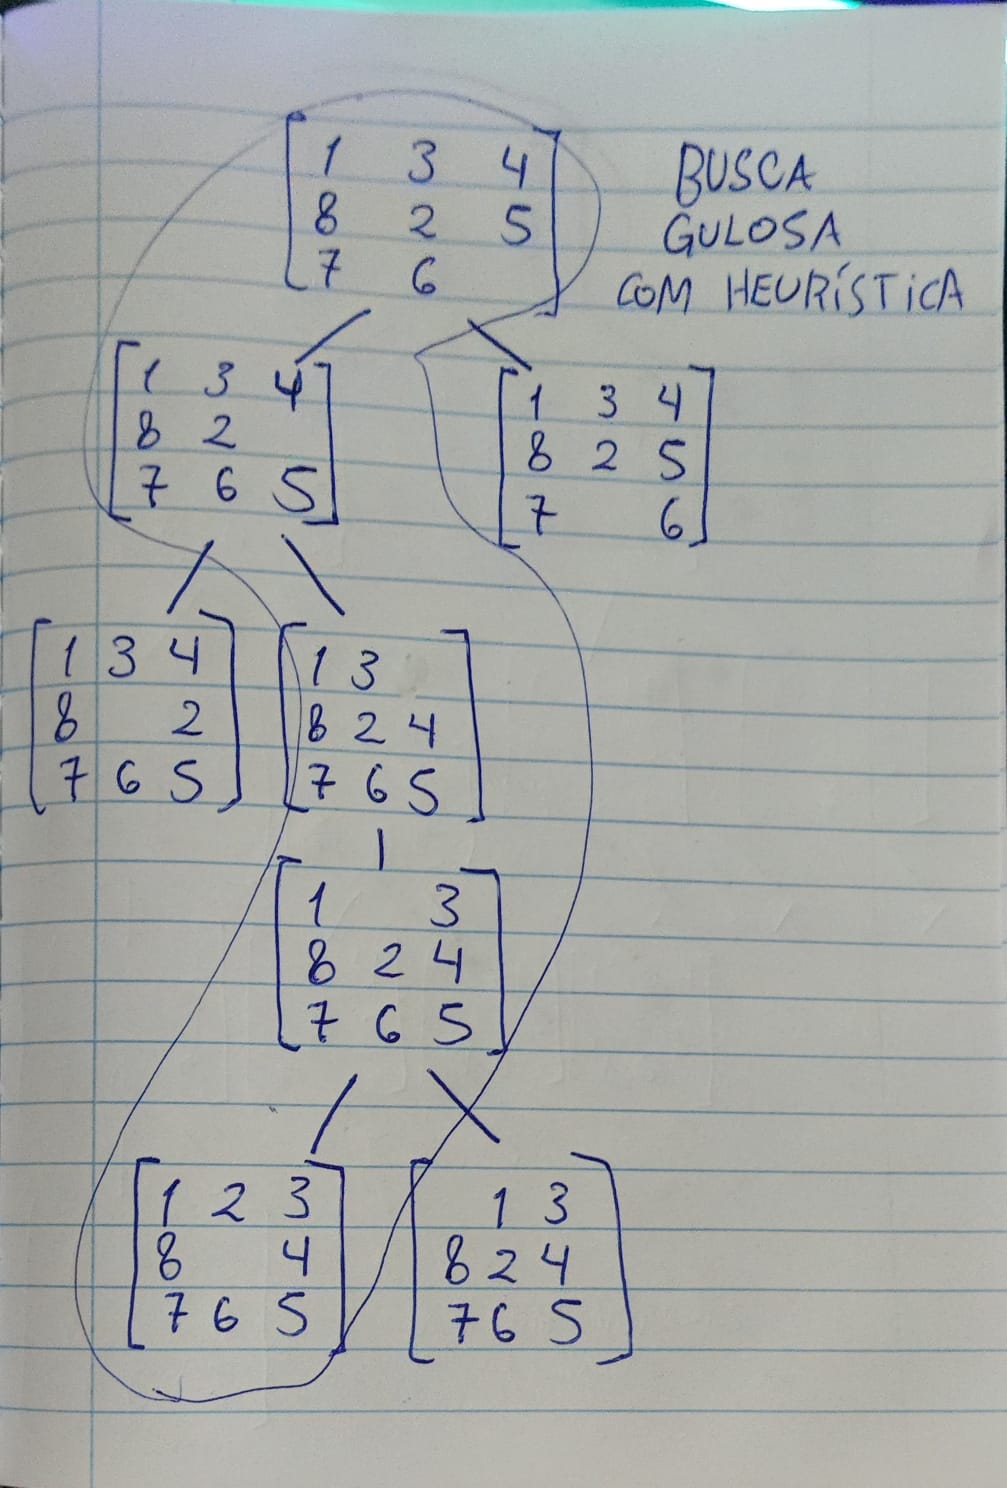 1 3 4
8 2 5
7 6
BUSCA
GULOSA
COM HEURÍSTICA
1 3 4
8 2
7 6 5
1 3 4
8 2 5
7 6
1 3 4
8 2
7 6 5
1 3
8 2 4
7 6 5
1 3
8 2 4
7 6 5
1 2 3
8 4
7 6 5
1 3
8 2 4
7 6 5